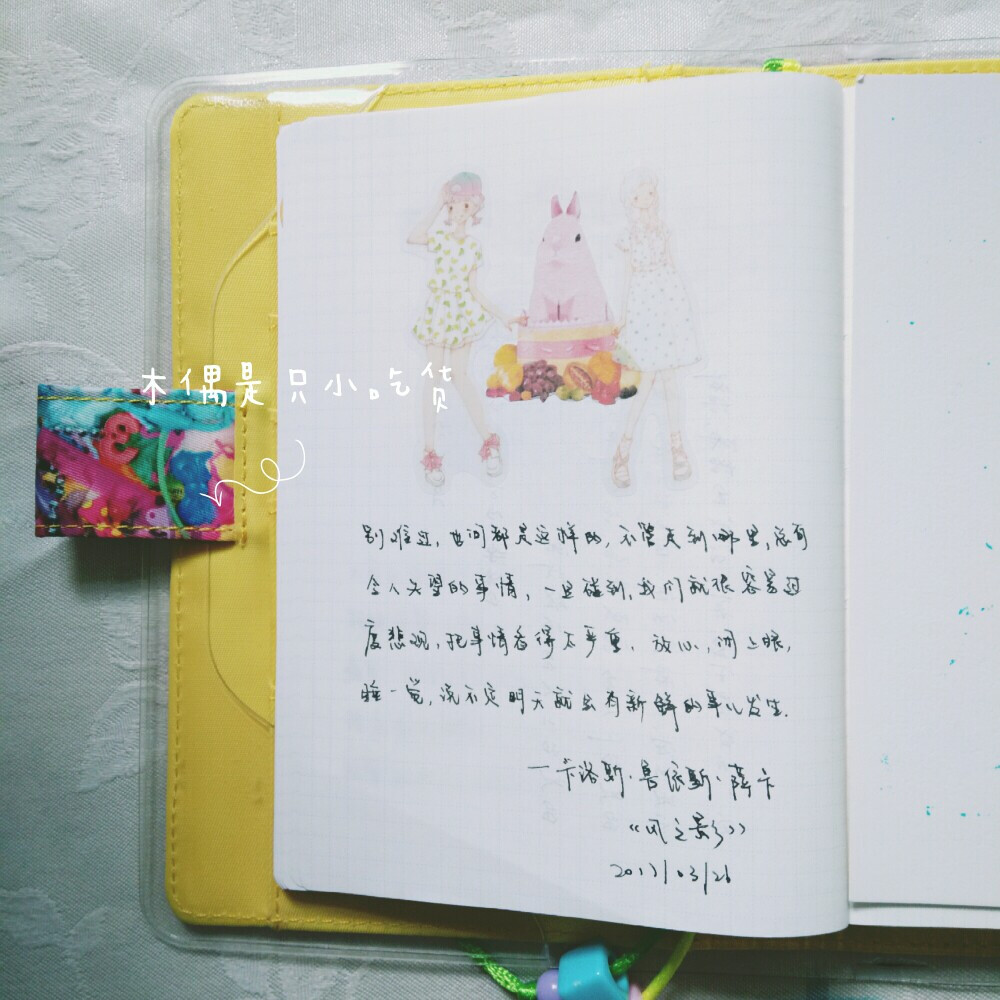 木偶是只小吃货
别难过,世间都是这样的,不管走到哪里,总有
令人失望的事情,一旦碰到,我们就很容易过
度悲观,把事情看得太严重.放心,闭上眼,
睡一觉,说不定明天就会有新鲜的事儿发生.
—卡洛斯·鲁依斯·萨卡
《风之影》
2017/03/26